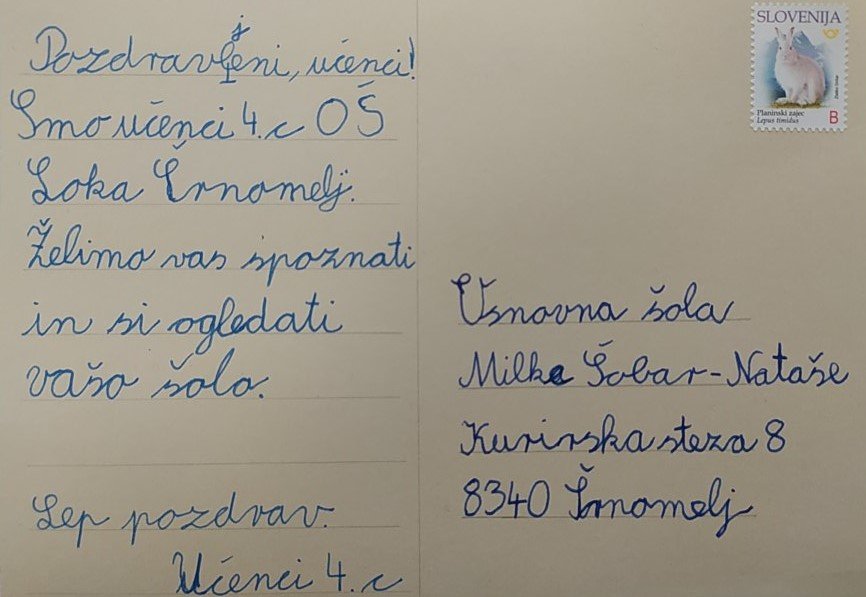 Pozdravljeni, učenci!
Smo učenci 4. c OŠ
Loka Črnomelj.
Želimo vas spoznati
in si ogledati
vašo šolo.
Lep pozdrav.
Učenci 4. c
SLOVENIJA
Planinski zajec
Lepus timidus
B
Osnovna šola
Milke Šobar-Nataše
Kurirska steza 8
8340 Črnomelj